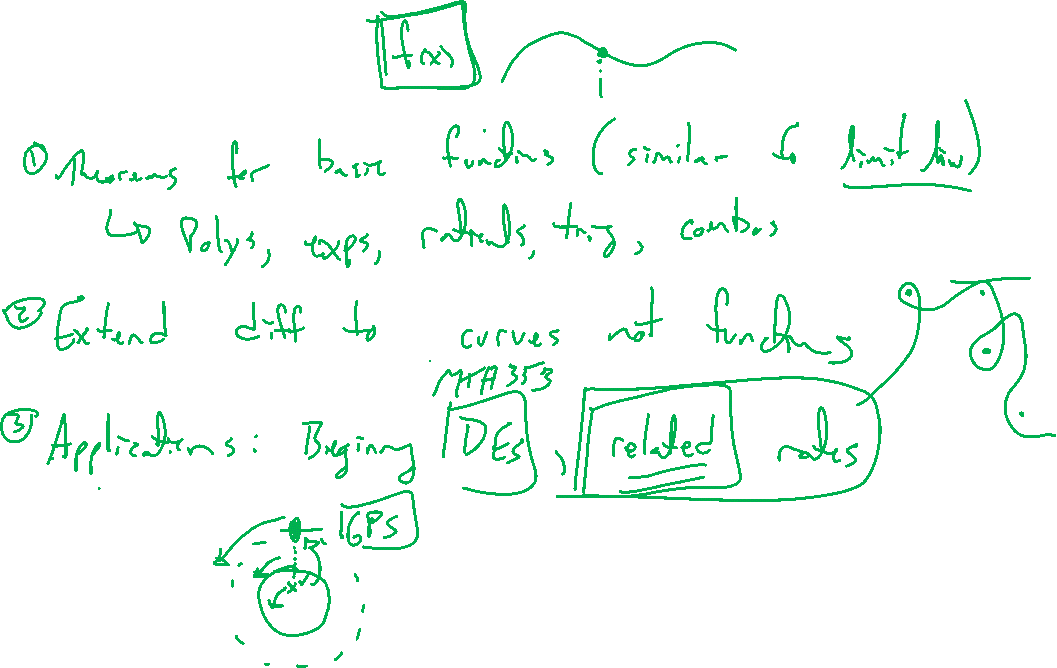 f(x)
① Theorems for basic functions (similar to limit law)
↳ Polys, exps, rationals, trig, combos
② Extend diff to curves not functions
MTH 353
③ Applications: Beginning DEs, related rates
GPS